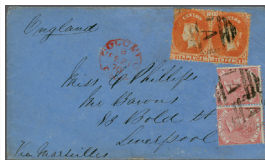 England
COLOMBO
Miss Phillips
Mr Barons
83 Bold St
Liverpool
Via Marseilles